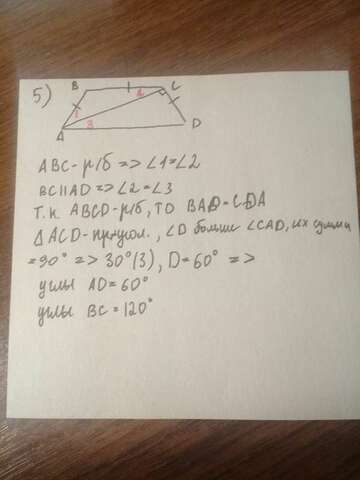 5)
B
C
1
2
3
A
D
ABC-р/б => ∠1=∠2
BC||AD => ∠2=∠3
Т.к. ABCD-р/б, то BAD=CDA
△ACD-прямоуг., ∠D больше ∠CAD, их сумма
=90° => 30°(3), D=60° =>
углы AD=60°
углы BC=120°